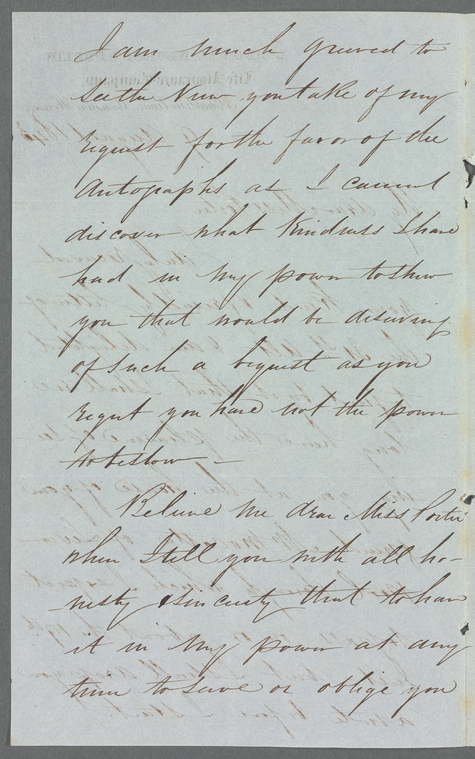 I am much grieved to
see the view you take of my
request for the favor of the
Autographs as I cannot
discover what Kindness I have
had in my power to shew
you that would be deserving
of such a bequest as you
regret you have not the power
to bestow –
Believe me dear Miss Porter
when I tell you with all ho-
-nesty & sincerity that to have
it in my power at any
time to serve or oblige you